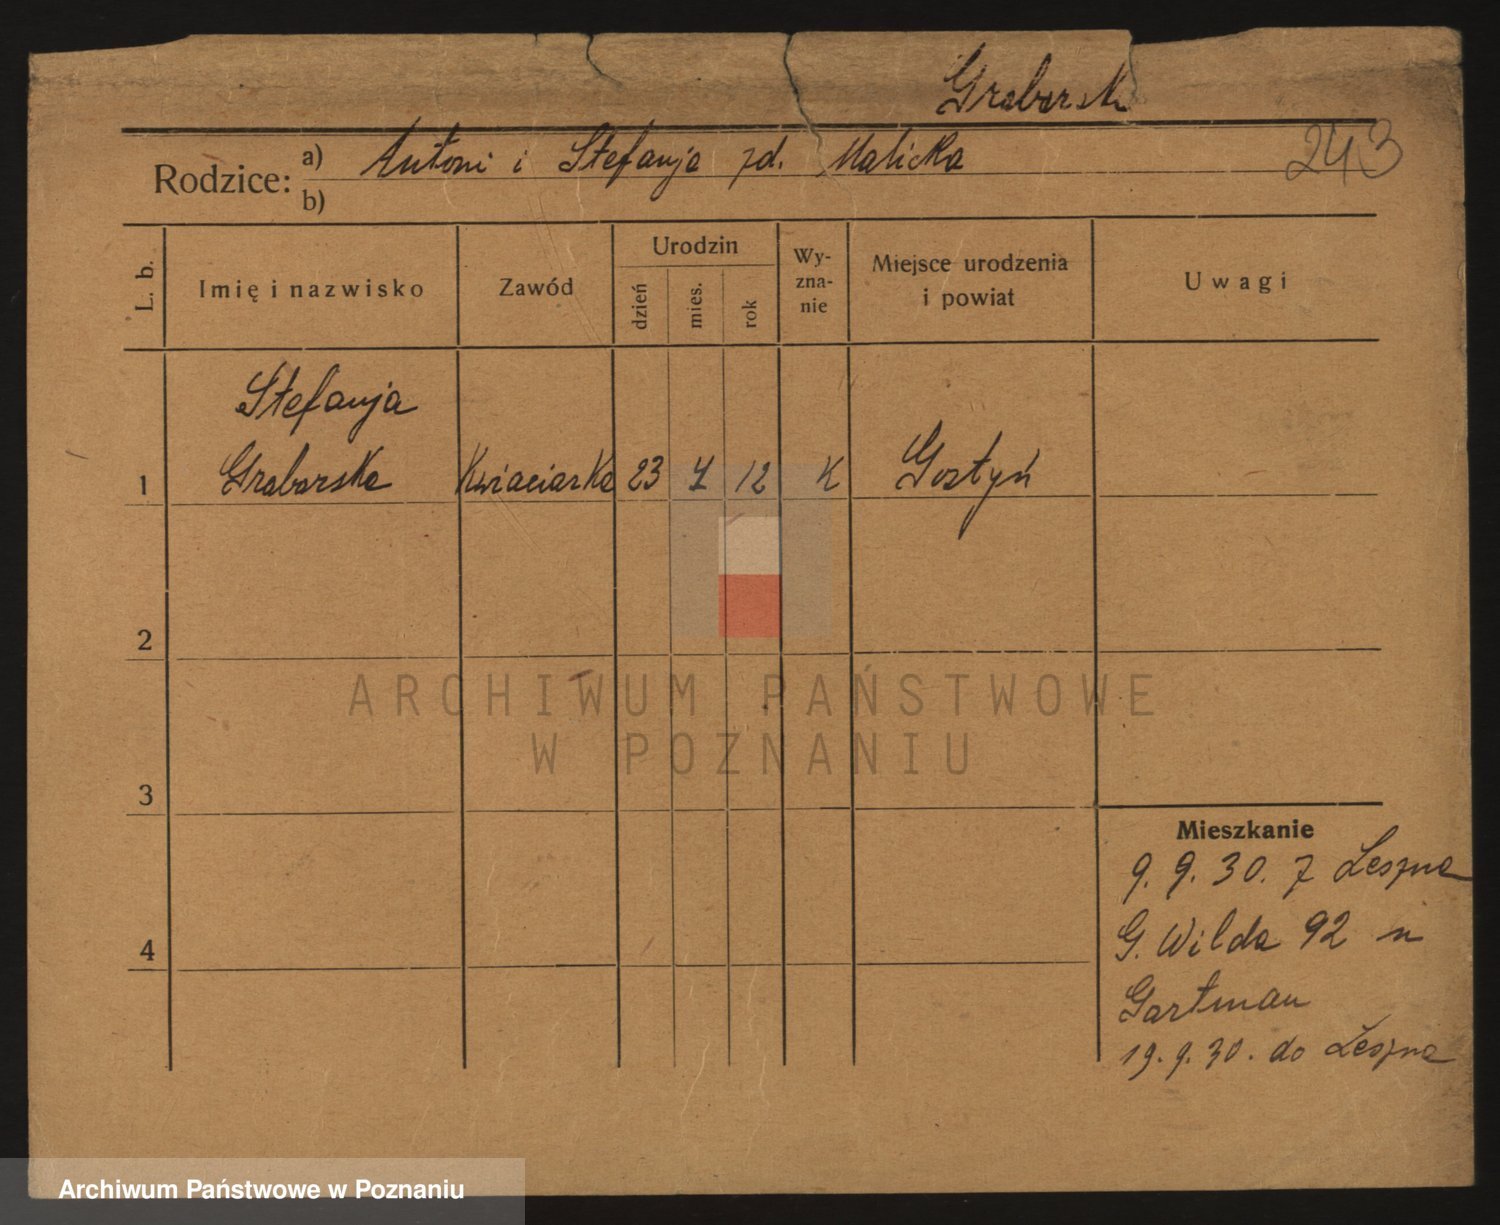 Grabarsk
243
Rodzice: a) Antoni i Stefanja zd. Malicka
b)
L. b.
Imię i nazwisko
Zawód
Urodzin
dzień
mies.
rok
Wy-
zna-
nie
Miejsce urodzenia
i powiat
Uwagi
Stefanja
1 Grabarska Kwiaciarka 23 7 12 K Gostyń
2
ARCHIWUM PAŃSTWOWE
W POZNANIU
3
Mieszkanie
9. 9. 30. z Leszna
G. Wilda 92 u
4
Gartman
19. 9. 30. do Leszna
Archiwum Państwowe w Poznaniu